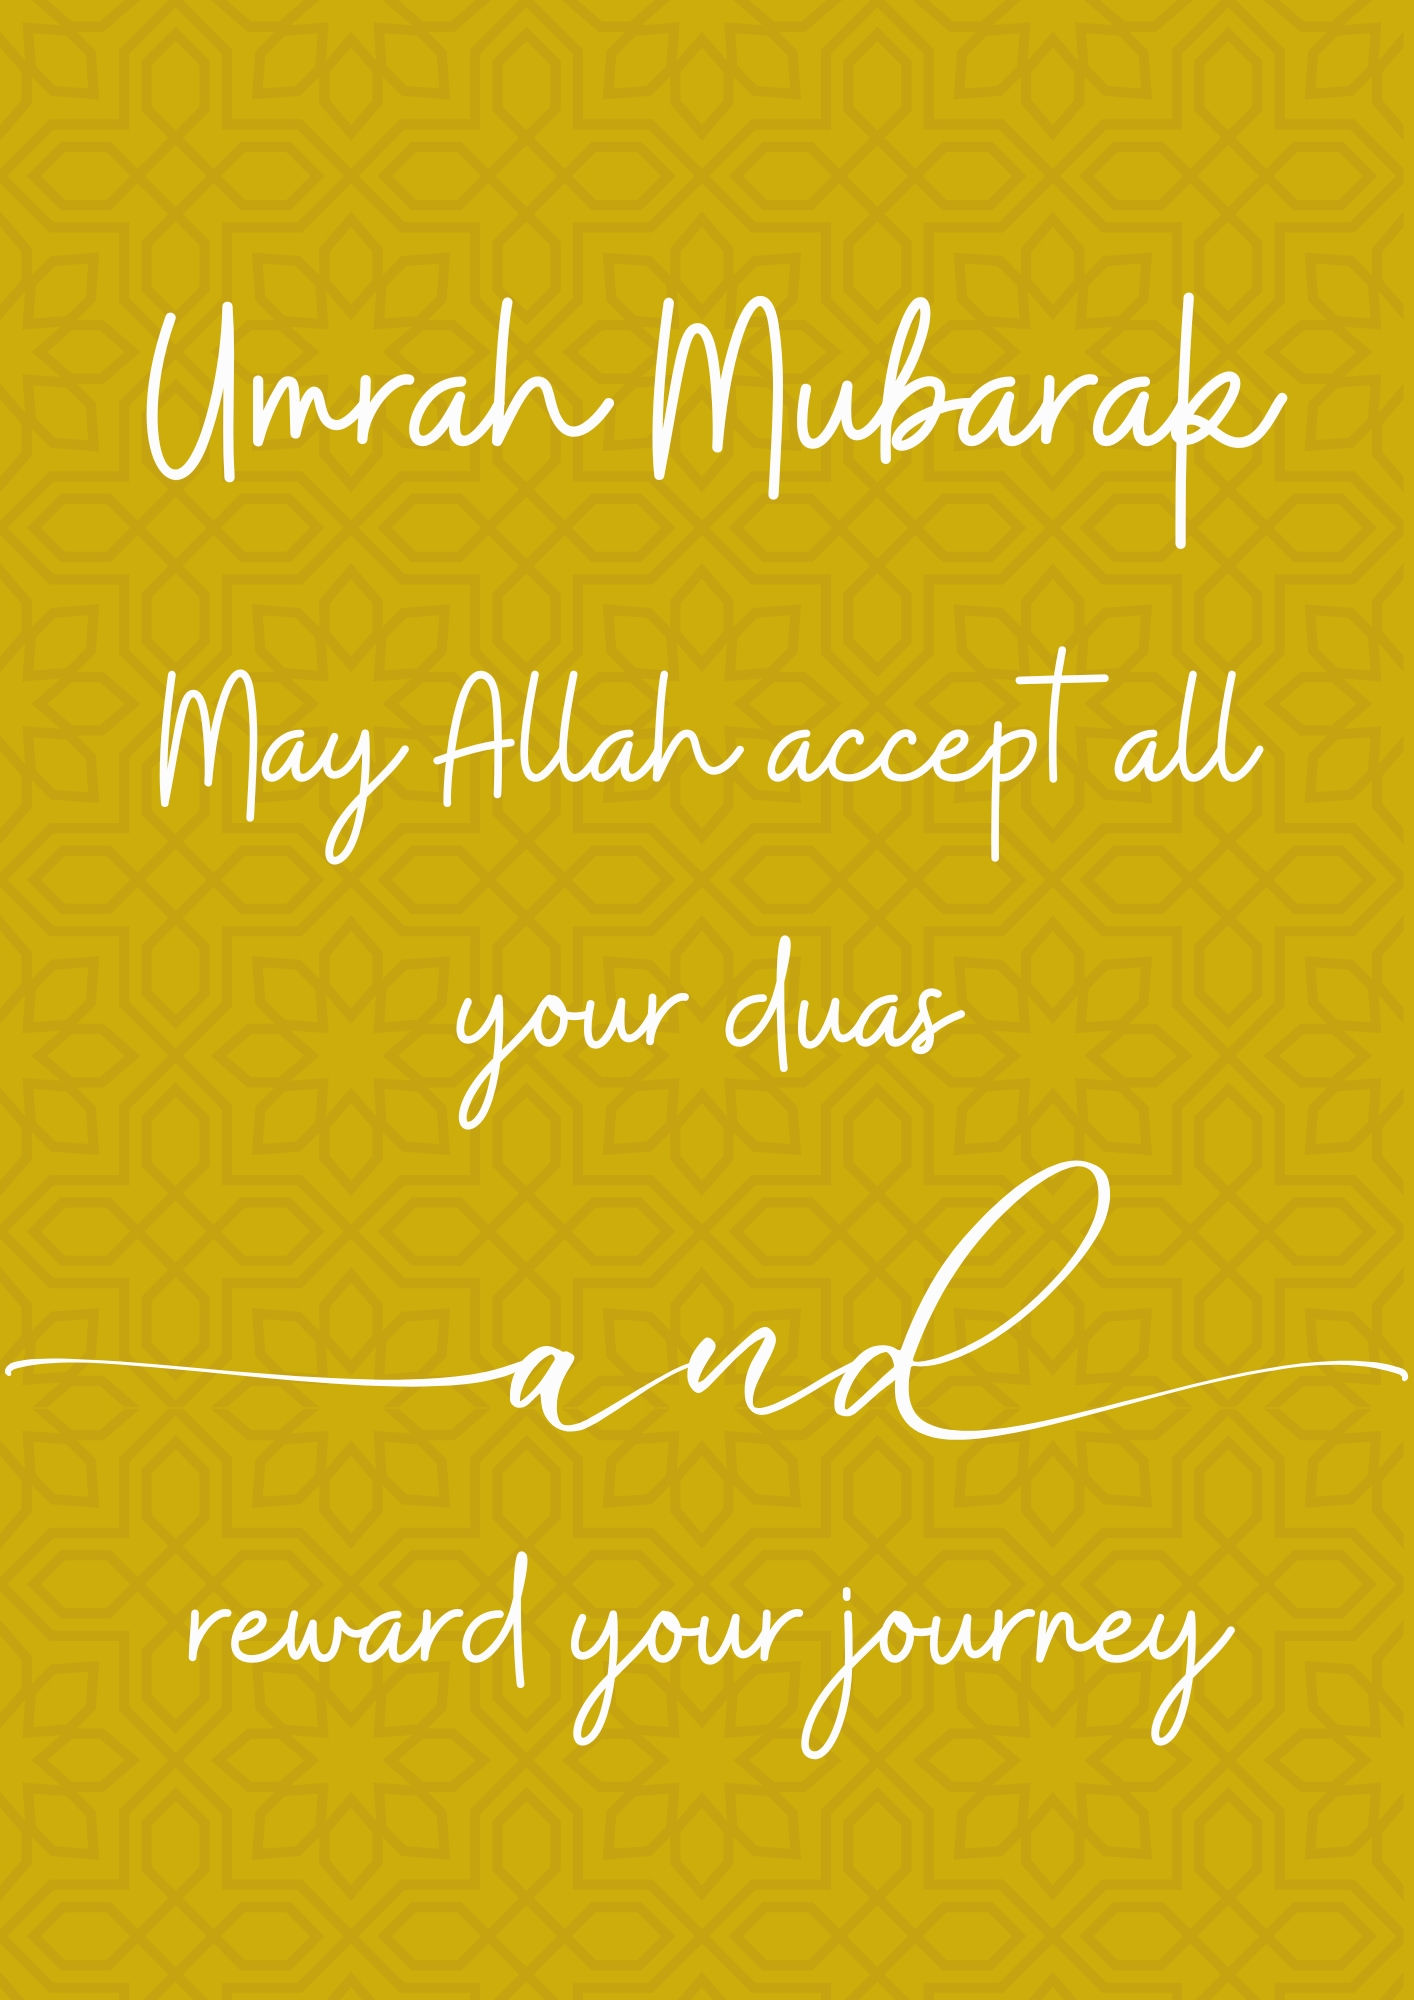 Umrah Mubarak
May Allah accept all
your duas
and
reward your journey